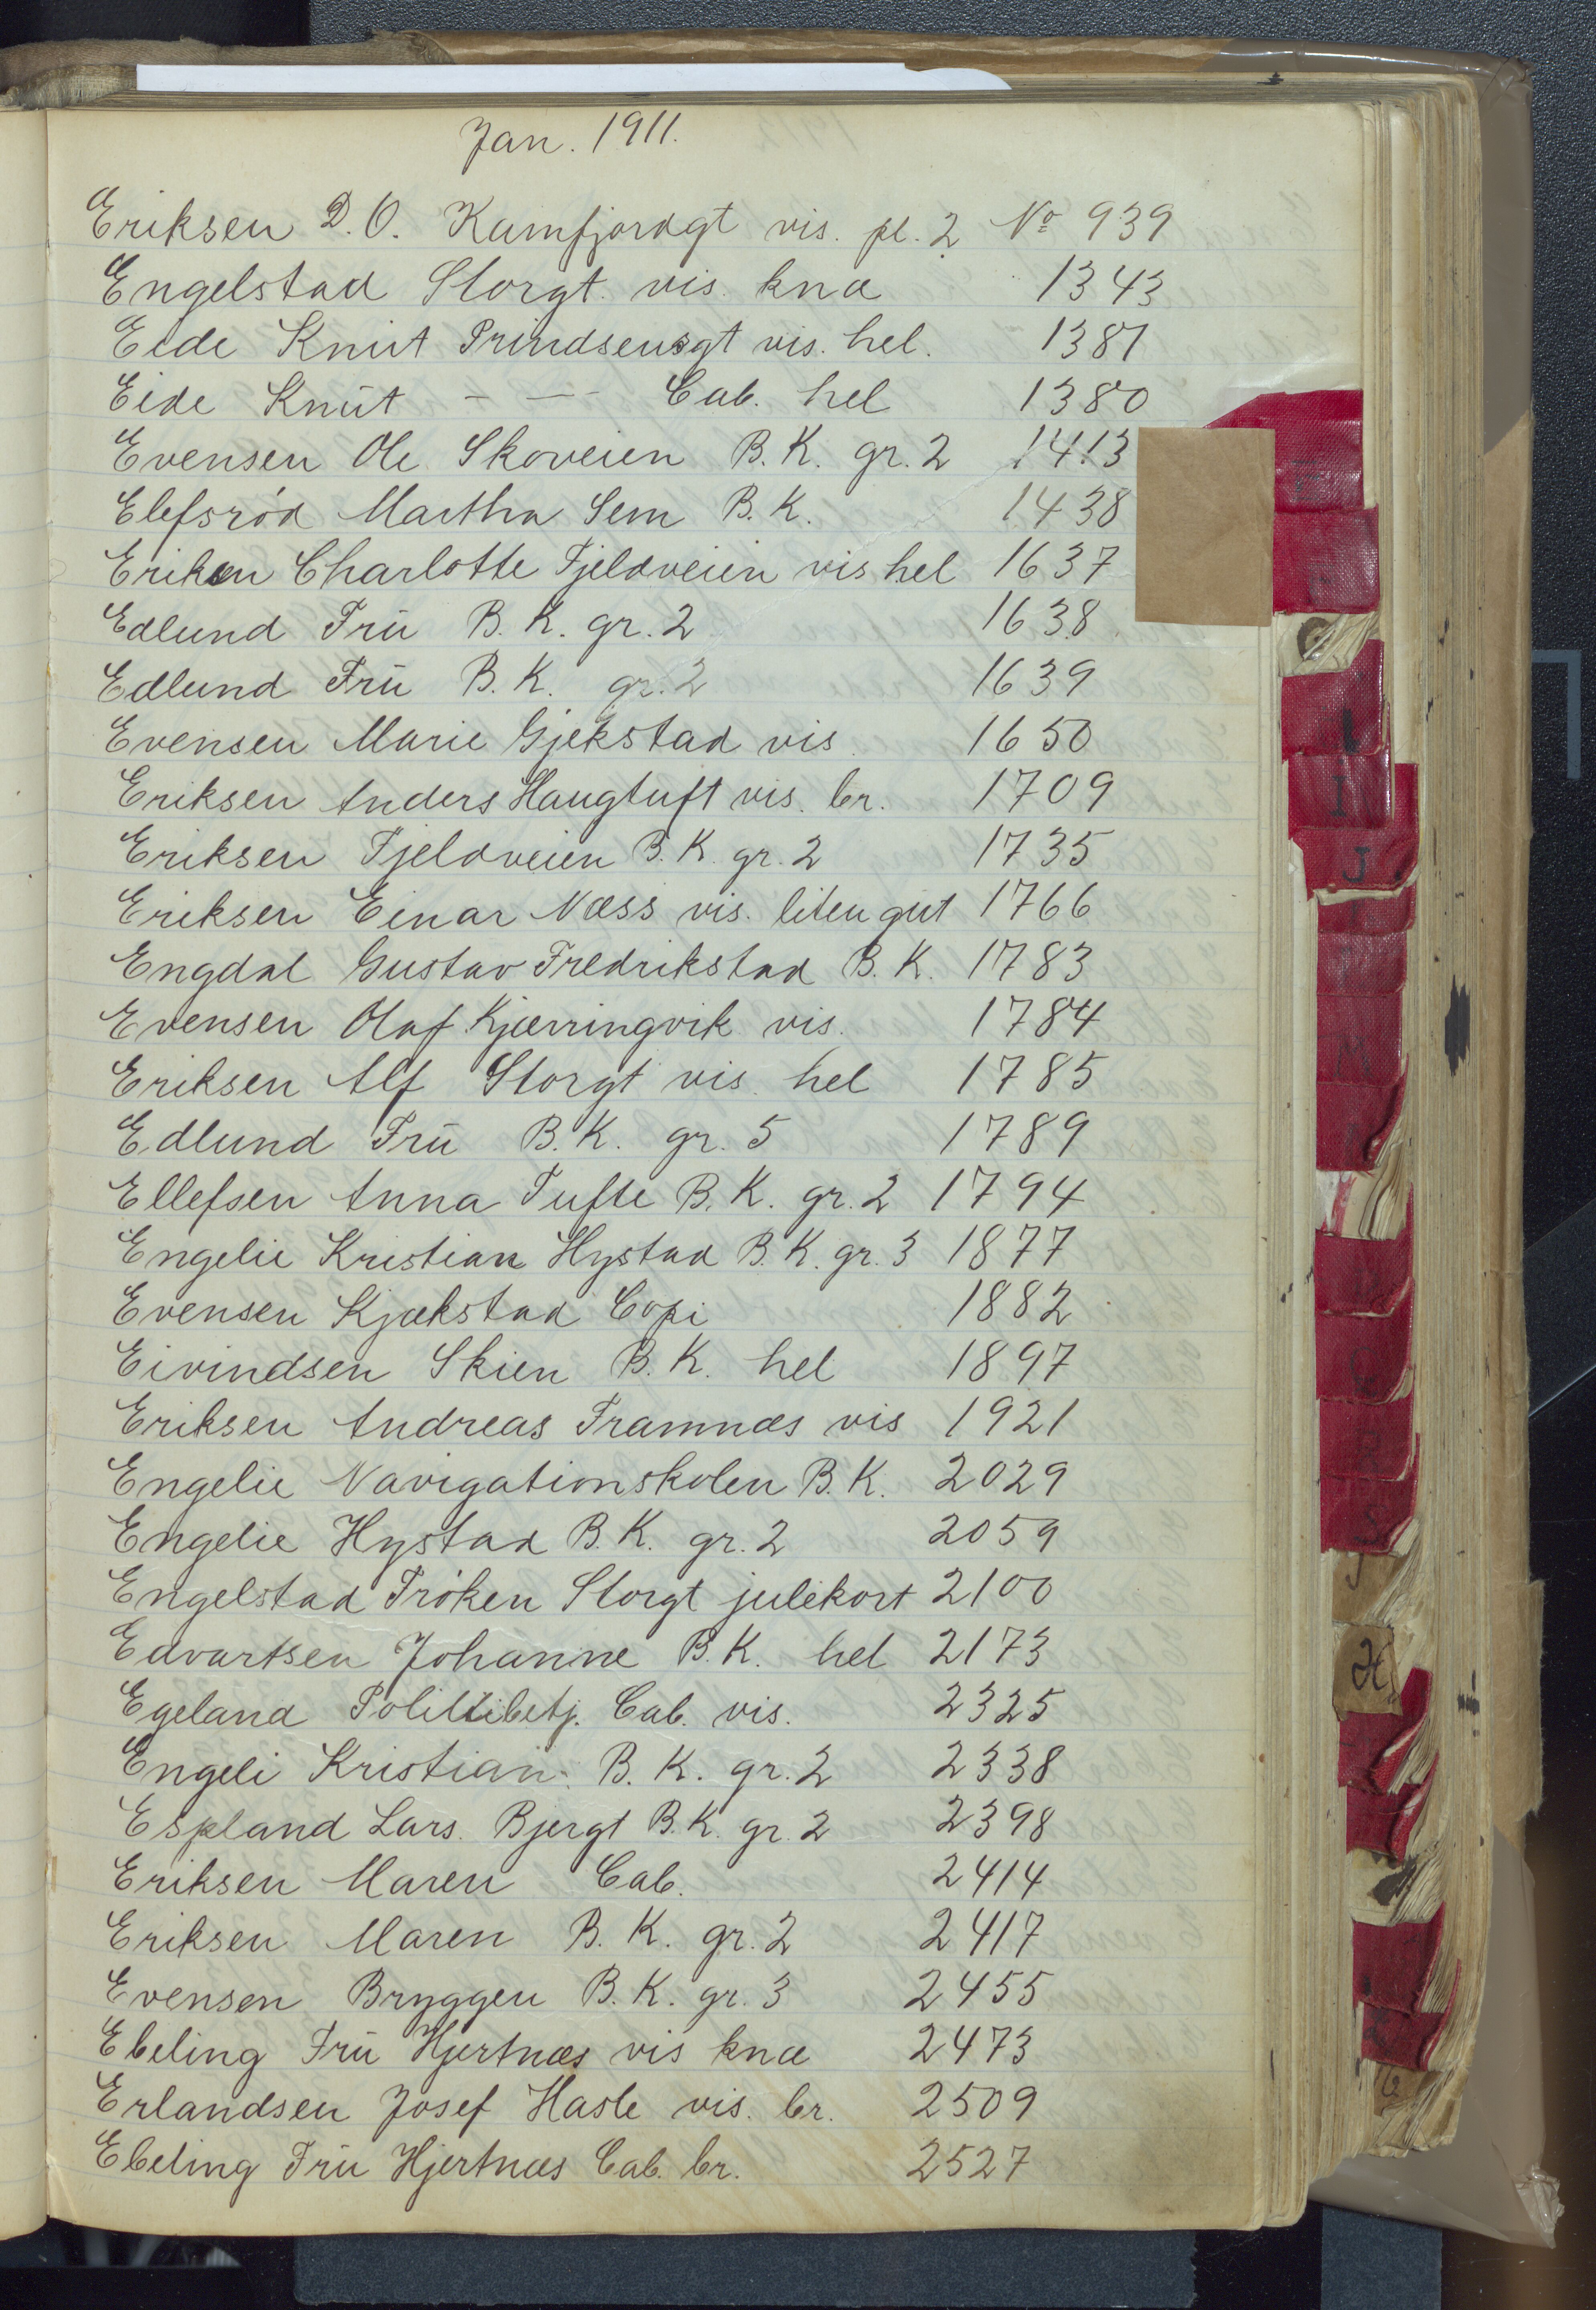 Jan. 1911.
Eriksen D.O. Kamfjordgt vis. pl. 2 No 939
Engelstad Storgt. vis. knæ 1343
Eide Knut Prindsensgt vis. hel. 1381
Eide Knut - - - Cab. hel 1380
Evensen Ole Skoveien B.K. gr. 2 1413
Elefsrød Martha Sem B.K. 1438
Eriksen Charlotte Fjeldveien vis hel 1637
Edlund Fru B.K. gr. 2 1638
Edlund Fru B.K. gr. 2 1639
Evensen Marie Gjekstad vis 1650
Eriksen Anders Haugtuft vis. br. 1709
Eriksen Fjeldveien B.K. gr. 2 1735
Eriksen Einar Næss vis. liten gut 1766
Engdal Gustav Fredrikstad B.K. 1783
Evensen Olaf Kjærringvik vis. 1784
Eriksen Alf Storgt vis. hel 1785
Edlund Fru B.K. gr. 5 1789
Ellefsen Anna Tufte B.K. gr. 2 1794
Engelie Kristian Hystad B.K. gr. 3 1877
Evensen Kjækstad Copi 1882
Eivindsen Skien B.K. hel 1897
Eriksen Andreas Framnæs vis 1921
Engelie Navigationskolen B.K. 2029
Engelie Hystad B.K. gr. 2 2059
Engelstad Frøken Storgt julekort 2100
Edvartsen Johanne B.K. hel 2173
Egeland Politibetj. Cab. vis. 2325
Engeli Kristian B.K. gr. 2 2338
Espland Lars. Bjergt B.K. gr. 2 2398
Eriksen Maren Cab. 2414
Eriksen Maren B.K. gr. 2 2417
Evensen Bryggen B.K. gr. 3 2455
Ebeling Fru Hjertnæs vis knæ 2473
Erlandsen Josef Hasle vis. br. 2509
Ebeling Fru Hjertnæs Cab. br. 2527
E
I
J
M
R
S